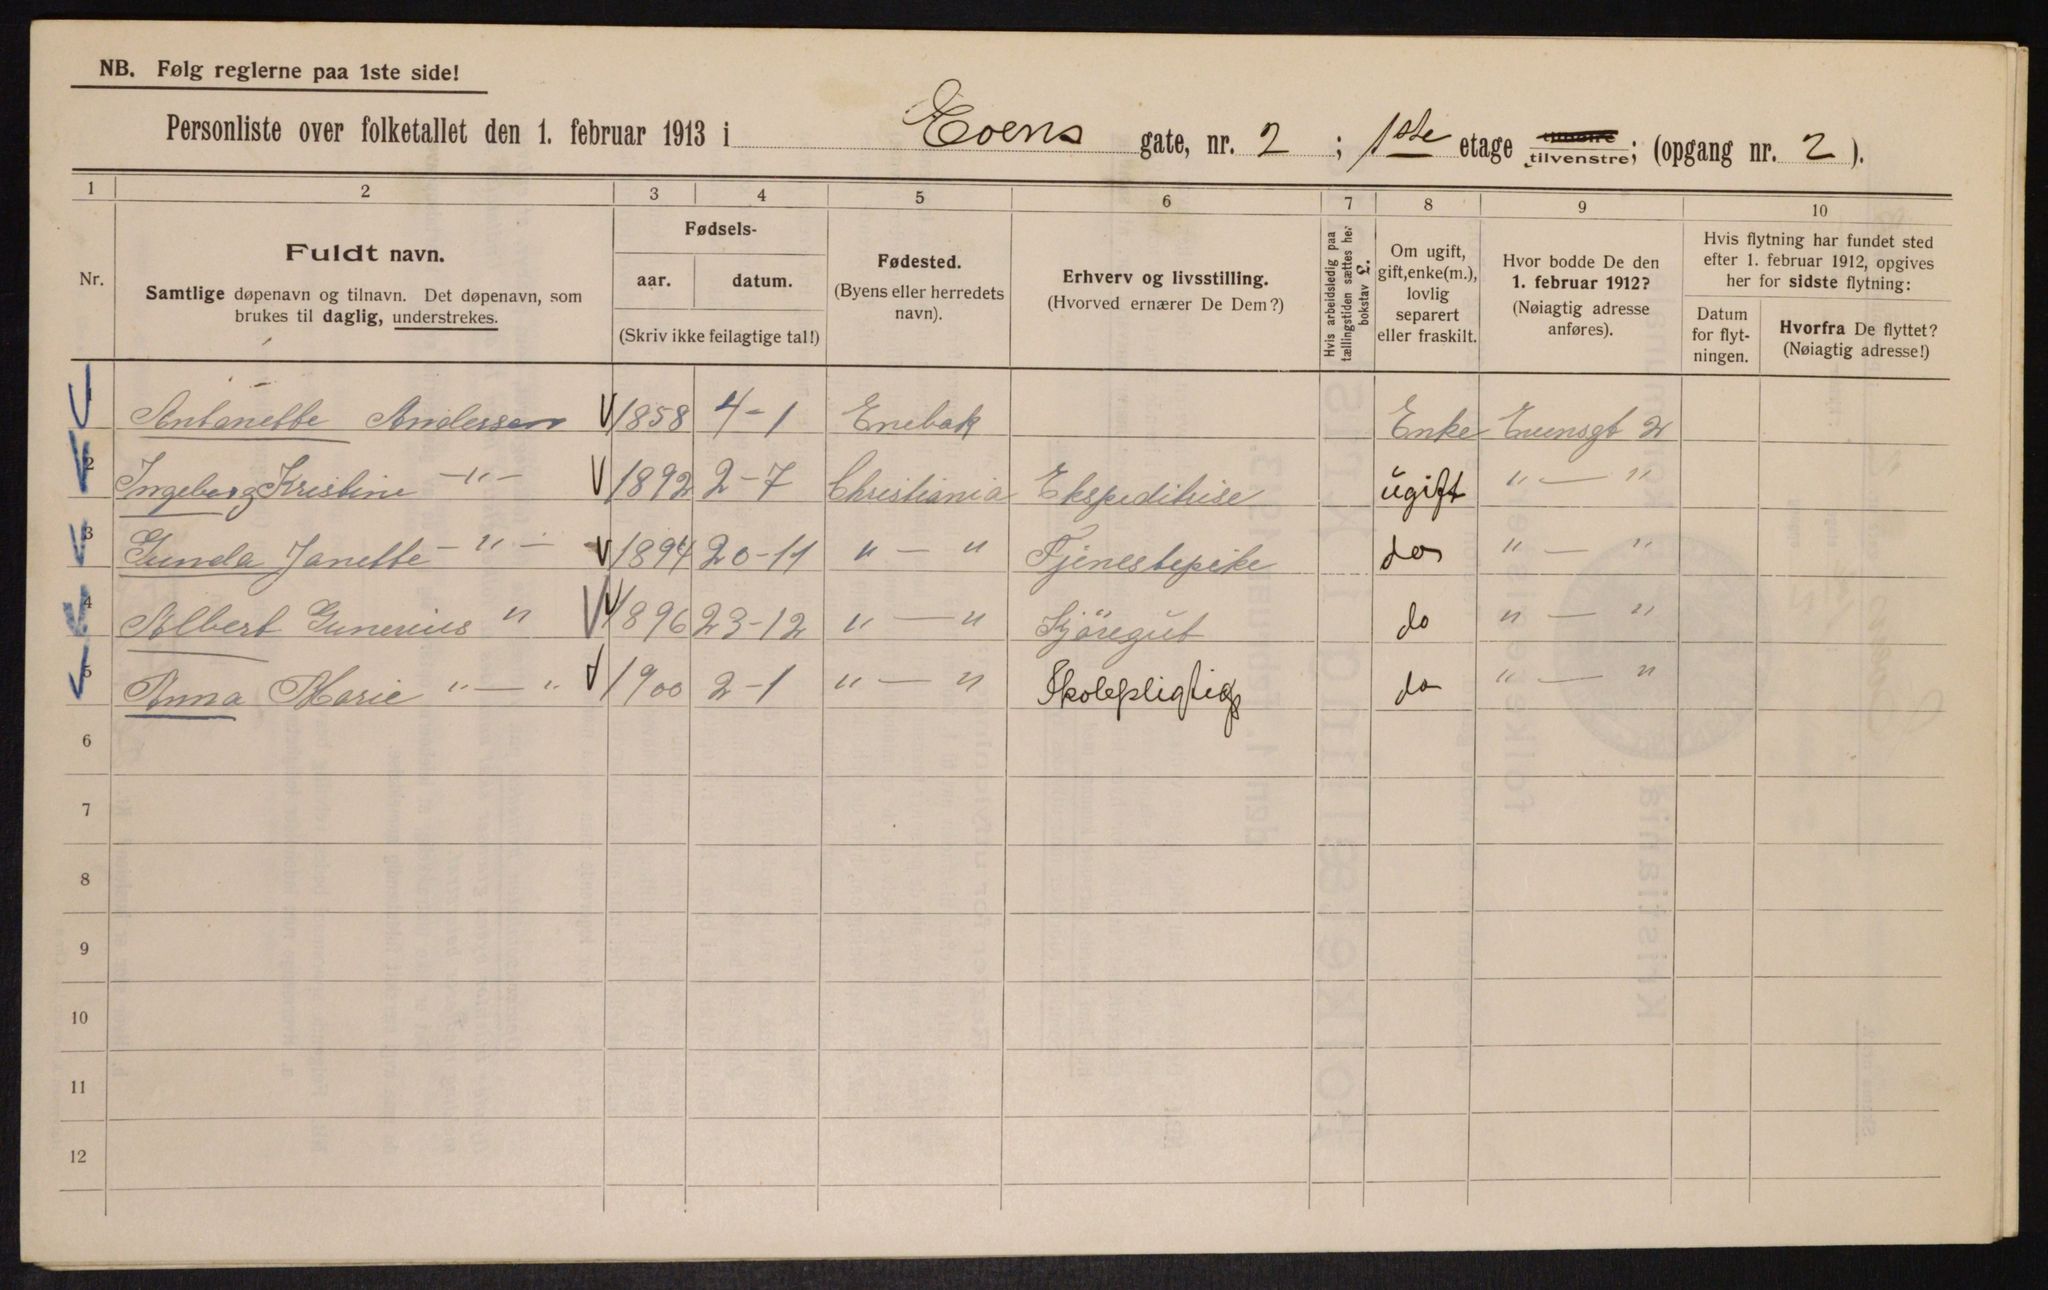 NB. Følg reglerne paa 1ste side!
Personliste over folketallet den 1. februar 1913 i Evens gate, nr. 2 ; 1ste etage tilhøire tilvenstre; (opgang nr. 2 ).
1 2 3 4 5 6 7 8 9 10
Nr.
Fuldt navn.
Samtlige døpenavn og tilnavn. Det døpenavn, som
brukes til daglig, understrekes.
Fødsels-
aar. datum.
(Skriv ikke feilagtige tal!)
Fødested.
(Byens eller herredets
navn).
Erhverv og livsstilling.
(Hvorved ernærer De Dem?)
Hvis arbeidsledig paa
tællingstiden sættes her
bokstav L.
Om ugift,
gift, enke(m.),
lovlig
separert
eller fraskilt.
Hvor bodde De den
1. februar 1912?
(Nøiagtig adresse
anføres).
Hvis flytning har fundet sted
efter 1. februar 1912, opgives
her for sidste flytning:
Datum
for flyt-
ningen.
Hvorfra De flyttet?
(Nøiagtig adresse!)
Antonette Andersen 1858 4-1 Enebak Enke Evensgt 2
2 Ingeborg Kristine -"- 1892 2-7 Christiania Ekspeditrise ugift " — "
3 Gunda Janette -"- 1894 20-11 " — " Tjenestepike do " — "
4 Albert Gunerius " 1896 23-12 " — " Sjöregut do " — "
5 Anna Marie " — " 1900 2-1 " — " Skolepligtig do " — "
6
7
8
9
10
11
12